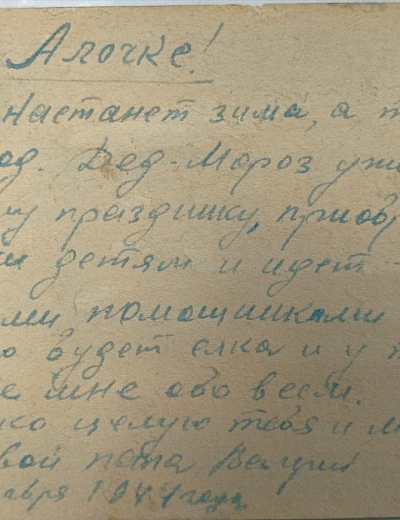 Алочке!
Настанет зима, а т
од. Дед-Мороз уж
му празднику, приоб
и детям и идет
ми помощниками
о будет елка и у
е мне обо всем.
ко целую тебя и м
вой папа
абря 1944 года